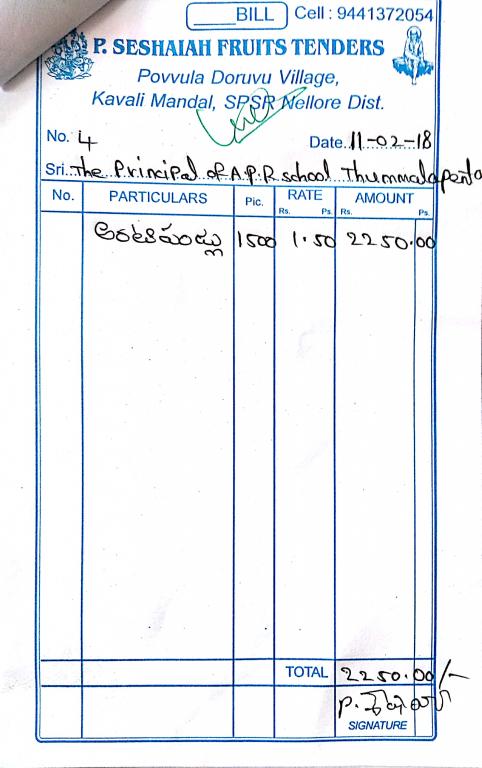 BILL Cell : 9441372054
P. SESHAIAH FRUITS TENDERS
Povvula Doruvu Village,
Kavali Mandal, SPSR Nellore Dist.
No. 4 Date. 11-02-18
Sri. The Principal of A.P.R school Thummalapenta
No. PARTICULARS Pic. RATE AMOUNT
Rs. Ps. Rs. Ps.
అరటిపండ్లు 1500 1.50 2250.00
TOTAL 2250.00/-
SIGNATURE